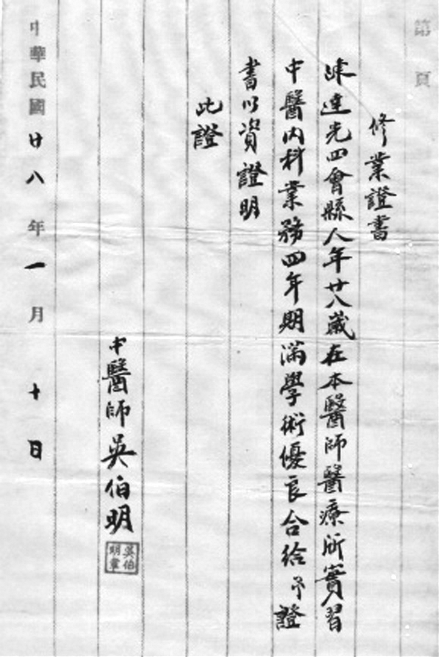 第 頁
修業證書
陳達光四會縣人年廿八歲在本醫師醫療所實習
中醫內科業務四年期滿學術優良合給予證
書以資證明
此證
中醫師吳伯明
吳伯明章
中華民國廿八年一月十日